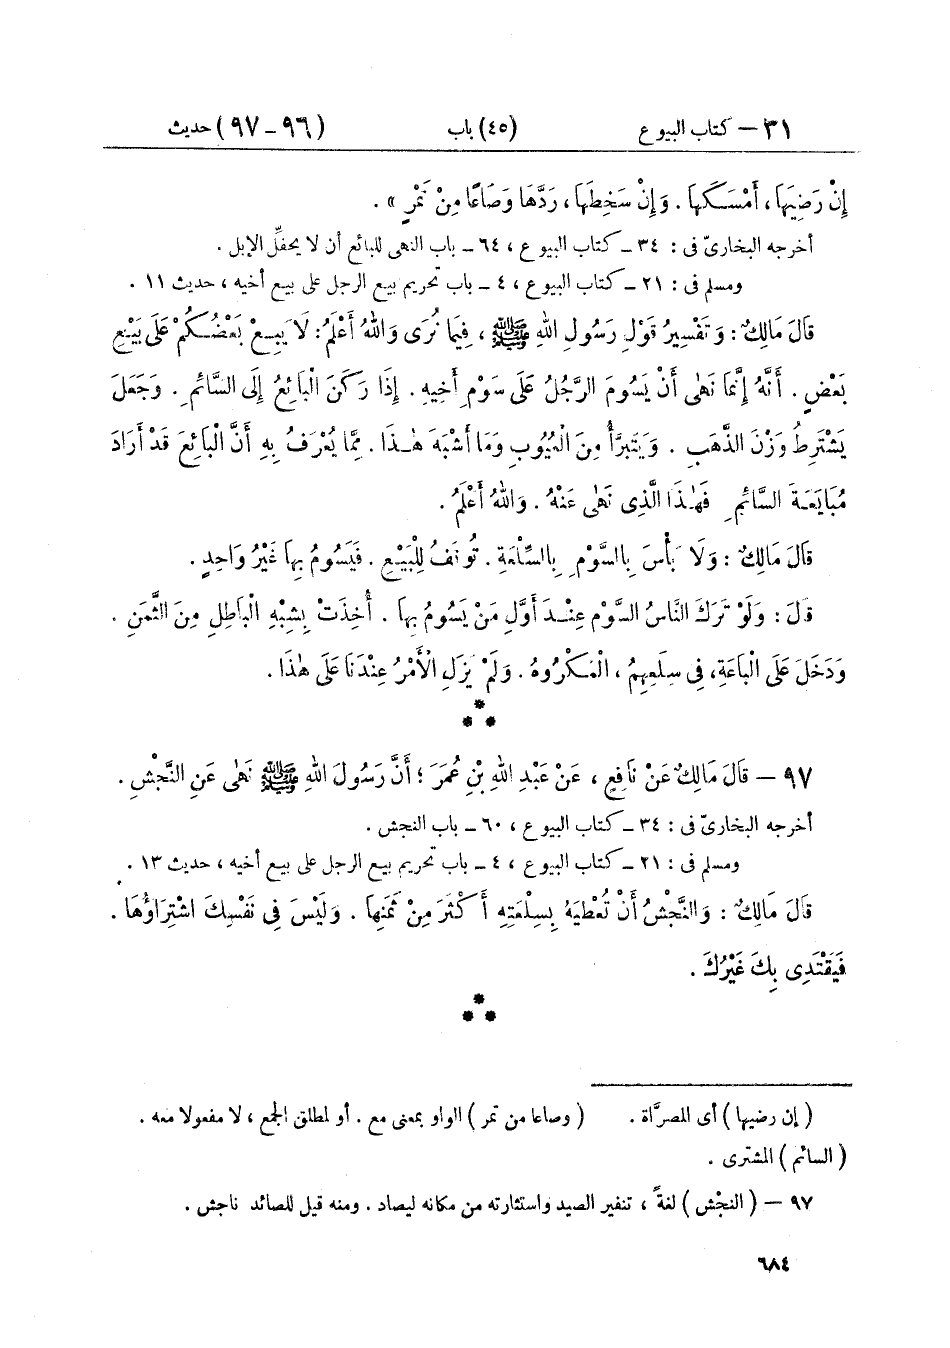 ٣١ – كتاب البيوع (٤٥) باب (٩٦ – ٩٧) حديث
إِنْ رَضِيَهَا، أَمْسَكَهَا . وَإِنْ سَخِطَهَا، رَدَّهَا وَصَاعًا مِنْ تَمْرٍ » .
أخرجه البخارىّ فى : ٣٤ – كتاب البيوع ، ٦٤ – باب النهى للبائع أن لا يحفِّل الإبل .
ومسلم فى : ٢١ – كتاب البيوع ، ٤ – باب تحريم بيع الرجل على بيع أخيه ، حديث ١١ .
قَالَ مَالِكٌ : وَتَفْسِيرُ قَوْلِ رَسُولِ اللهِ ﷺ ، فِيمَا نُرَى وَاللهُ أَعْلَمُ : لَا يَبِعْ بَعْضُكُمْ عَلَى بَيْعِ
بَعْضٍ . أَنَّهُ إِنَّمَا نَهَى أَنْ يَسُومَ الرَّجُلُ عَلَى سَوْمِ أَخِيهِ . إِذَا رَكَنَ الْبَائِعُ إِلَى السَّائِمِ . وَجَعَلَ
يَشْتَرِطُ وَزْنَ الذَّهَبِ . وَيَتَبَرَّأُ مِنَ الْعُيُوبِ وَمَا أَشْبَهَ هٰذَا . مِمَّا يُعْرَفُ بِهِ أَنَّ الْبَائِعَ قَدْ أَرَادَ
مُبَايَعَةَ السَّائِمِ فَهٰذَا الَّذِى نَهَى عَنْهُ . وَاللهُ أَعْلَمُ .
قَالَ مَالِكٌ : وَلَا بَأْسَ بِالسَّوْمِ بِالسِّلْعَةِ . تُوقَفُ لِلْبَيْعِ . فَيَسُومُ بِهَا غَيْرُ وَاحِدٍ .
قَالَ : وَلَوْ تَرَكَ النَّاسُ السَّوْمَ عِنْدَ أَوَّلِ مَنْ يَسُومُ بِهَا . أُخِذَتْ بِشِبْهِ الْبَاطِلِ مِنَ الثَّمَنِ .
وَدَخَلَ عَلَى الْبَاعَةِ، فِى سِلَعِهِمُ ، الْمَكْرُوهُ . وَلَمْ يَزَلِ الْأَمْرُ عِنْدَنَا عَلَى هٰذَا .
* * *
٩٧ – قَالَ مَالِكٌ عَنْ نَافِعٍ ، عَنْ عَبْدِ اللهِ بْنِ عُمَرَ ؛ أَنَّ رَسُولَ اللهِ ﷺ نَهَى عَنِ النَّجْشِ .
أخرجه البخارىّ فى : ٣٤ – كتاب البيوع ، ٦٠ – باب النجش .
ومسلم فى : ٢١ – كتاب البيوع ، ٤ – باب تحريم بيع الرجل على بيع أخيه ، حديث ١٣ .
قَالَ مَالِكٌ : وَالنَّجْشُ أَنْ تُعْطِيَهُ بِسِلْعَتِهِ أَكْثَرَ مِنْ ثَمَنِهَا . وَلَيْسَ فِى نَفْسِكَ اشْتِرَاؤُهَا .
فَيَقْتَدِى بِكَ غَيْرُكَ .
* * *
( إن رضيها ) أى المصرَّاة . ( وصاعا من تمر ) الواو بمعنى مع . أو لمطلق الجمع ، لا مفعولا معه .
( السائم ) المشترى .
٩٧ – ( النجْش ) لغةً ، تنفير الصيد واستثارته من مكانه ليصاد . ومنه قيل للصائد ناجش .
٦٨٤